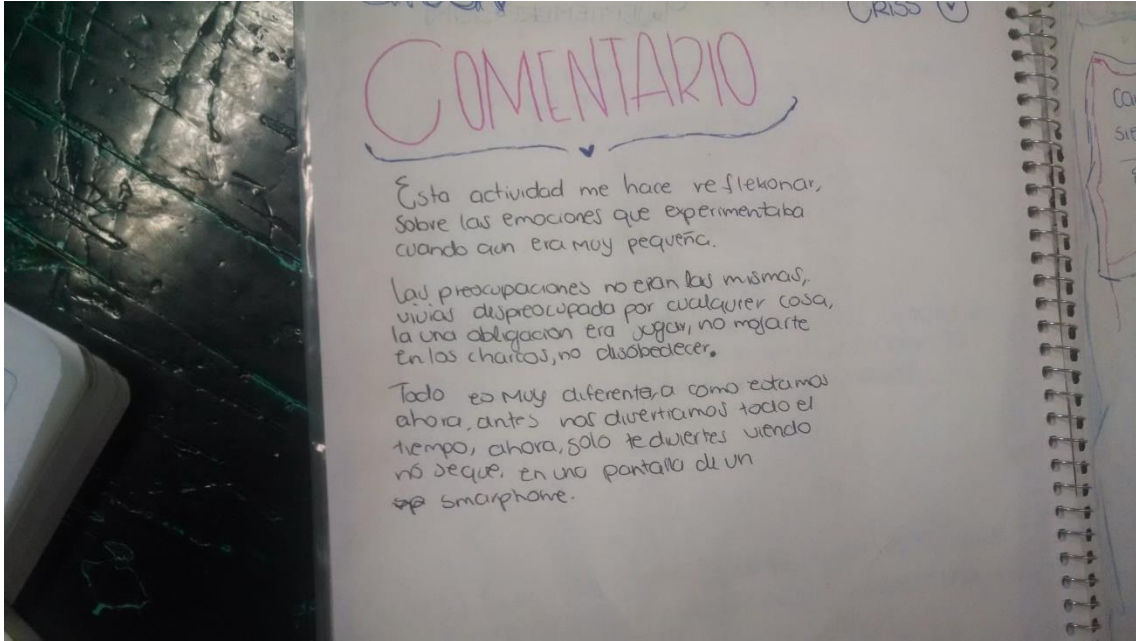 CRISS
COMENTARIO
Esta actividad me hace reflexonar,
sobre las emociones que experimentaba
cuando aun era muy pequeña.
Las preocupaciones no eran las mismas,
vivias despreocupada por cualquier cosa,
la una obligacion era jugar, no mojarte
en los charcos, no disobedecer.
Todo es muy diferente, a como estamos
ahora, antes nos divertiamos todo el
tiempo, ahora, solo te diviertes viendo
no se que, en una pantalla de un
smarphone.